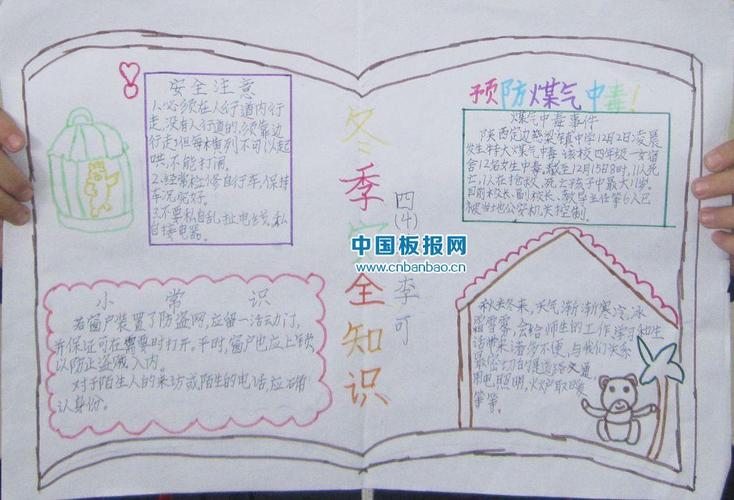 安全注意
1.必须在人行道内行
走,没有人行道的,须靠边
行走,但每横列不可以起
哄,不能打闹。
2.经常检修自行车,保持
车况完好。
3.不要私自乱扯电线,私
自接电器。
小常识
若窗户装置了防盗网,应留一活动门,
并保证可在需要时打开。平时,窗户也应上锁,
以防止盗贼入内。
对于陌生人的来访或陌生的电话,应确
认身份。
冬季安全知识
四(4)李可
中国板报网
www.cnbanbao.cn
预防煤气中毒!
煤气中毒事件
陕西定边堆梁镇中学12月2日凌晨
发生特大煤气中毒 该校四年级一女宿
舍12名女生中毒,截至12月15日8时,11人死
亡,1人在抢救,死亡孩子中最大
目前校长,副校长、教导主任等6人已
被当地公安机关控制。
秋去冬来,天气渐渐寒冷,冰
霜雪雾,会给师生的工作学习和生
活带来诸多不便,与我们关系
最密切的是道路交通
用电照明,火炉取暖
等等。